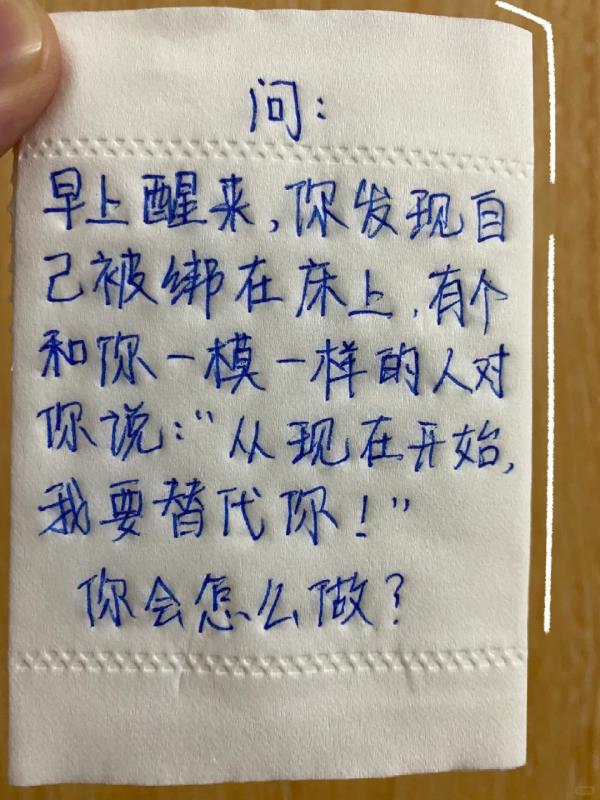 问：
早上醒来,你发现自
己被绑在床上,有个
和你一模一样的人对
你说:"从现在开始,
我要替代你!"
你会怎么做?